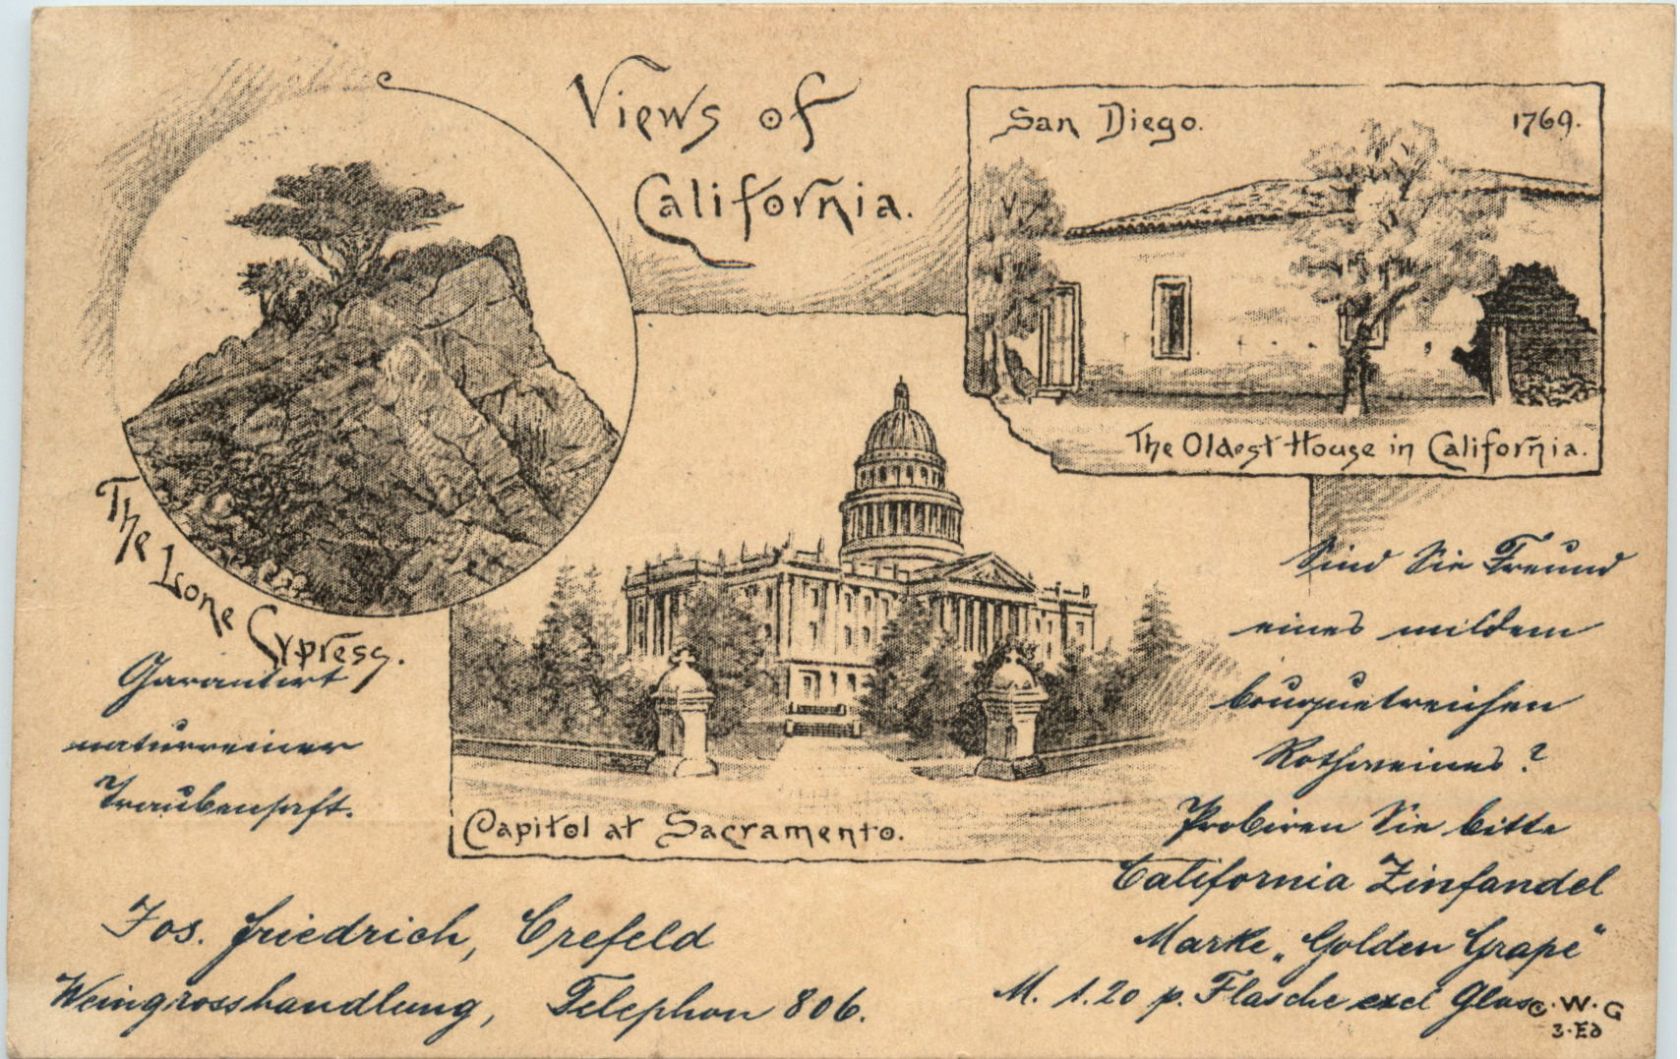 Views of
California.
San Diego. 1769.
The Oldest House in California.
The Lone Cypress.
Capitol at Sacramento.
Garantirt
naturreiner
Traubensaft.
Sind Sie Freund
eines mildem
bouquetreichen
Rothweines?
Probiren Sie bitte
California Zinfandel
Marke „Golden Grape"
M. 1.20 p. Flasche excl Glas
Jos. Friedrich, Crefeld
Weingrosshandlung, Telephon 806.
C.W.G
3.Ed